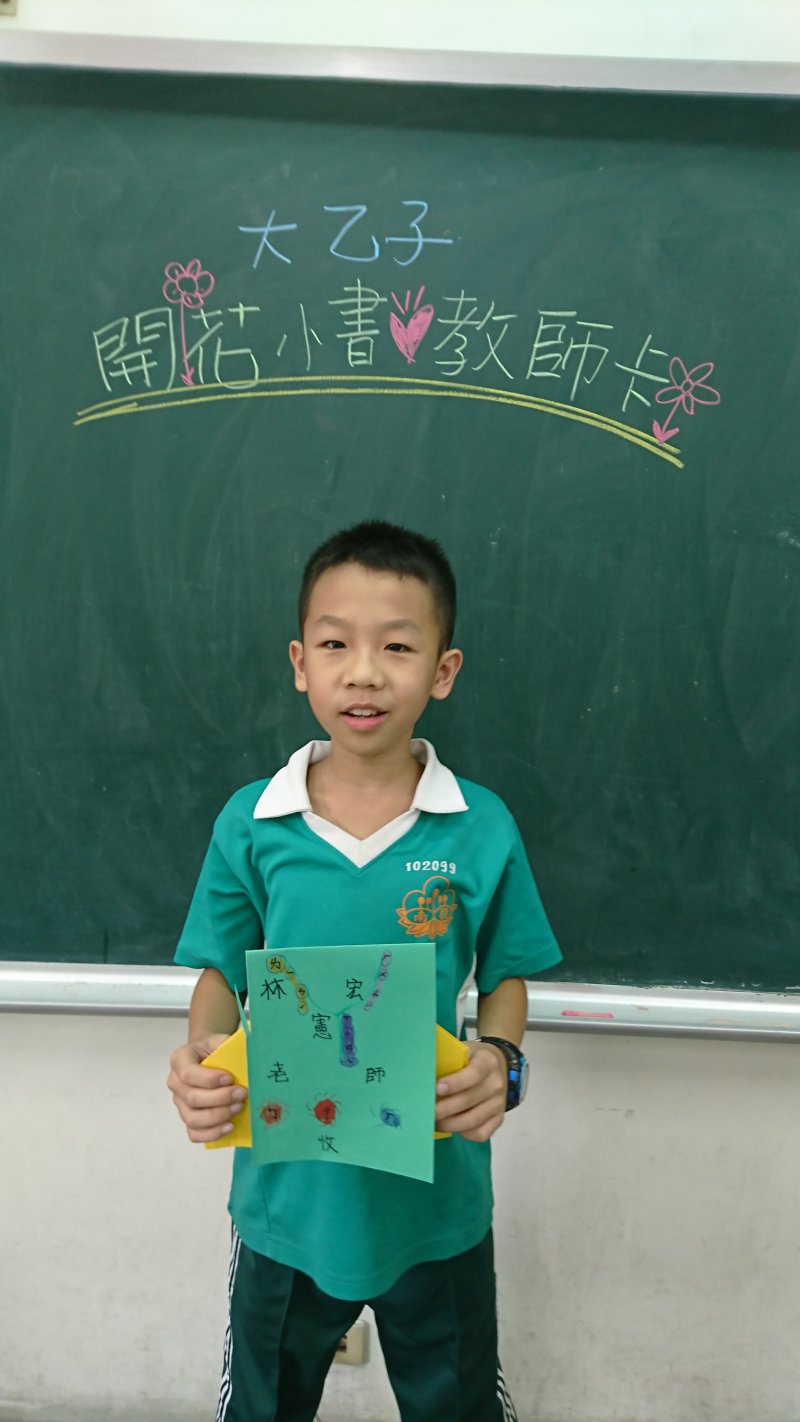 大乙子
開花小書教師卡
102099
林宏
憲
老師
收